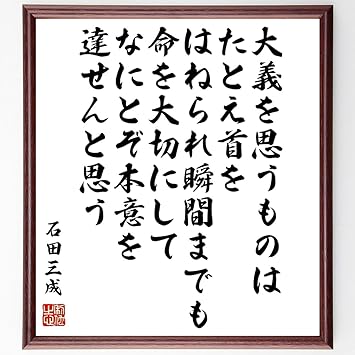 大義を思うものは
たとえ首を
はねられ瞬間までも
命を大切にして
なにとぞ本意を
達せんと思う
石田三成